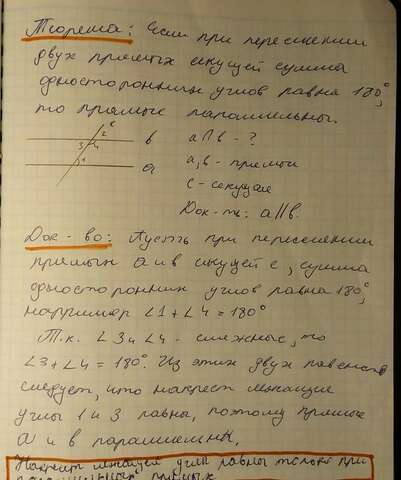 Теорема: Если при пересечении
двух прямых секущей сумма
односторонних углов равна 180°,
то прямые параллельны.
c
2
3 4
b
1
a
a∩b - ?
a, b - прямые
c - секущая
Док-ть: a||b.
Док-во: Пусть при пересечении
прямых a и b секущей c, сумма
односторонних углов равна 180°,
например ∠1+∠4=180°
Т.к. ∠3 и ∠4 - смежные, то
∠3+∠4=180°. Из этих двух равенств
следует, что накрест лежащие
углы 1 и 3 равны, поэтому прямые
a и b параллельны.
Накрест лежащие углы равны только при
параллельных прямых